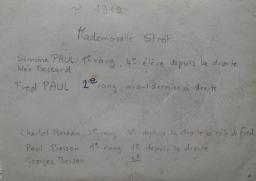 ~ 1919
Mademoiselle Streit
Simone PAUL 1e rang, 4e élève depuis la droite
Née Bessard
Fred PAUL 2e rang, avant-dernier à droite
Charlot Besson, rang depuis la droite à côté de Fred
Paul Besson 1er rang 1e depuis la droite
Georges Besson 2e